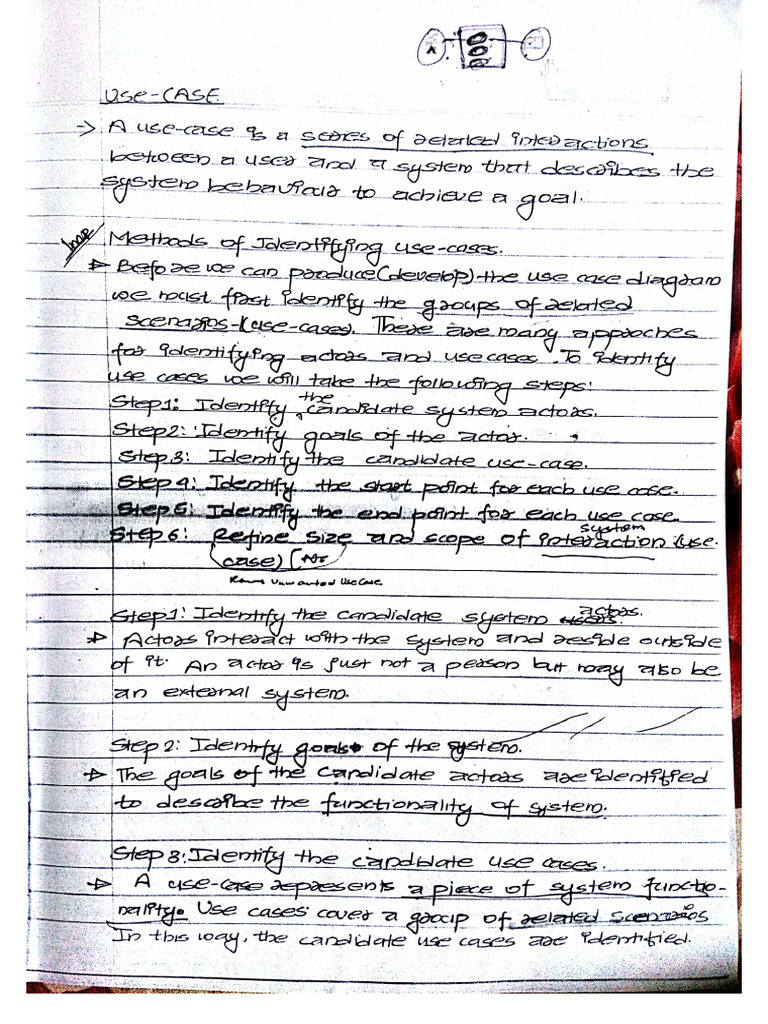 USE-CASE
→ A use-case is a series of related interactions
between a user and a system that describes the
system behaviour to achieve a goal.
Imp Methods of Identifying use-cases.
→ Before we can produce(develop) the use case diagram
we must first identify the groups of related
scenarios (use-cases). There are many approches
for identifying actors and use cases. To identify
use cases we will take the following steps:
Step1: Identify, the candidate system actors.
Step2: Identify goals of the actor.
Step3: Identify the candidate use-case.
Step 4: Identify the start point for each use case.
Step 5: Identify the end point for each use case.
Step 6: Refine size and scope of system interaction (use.
case)
Unwanted Use Case
Step1: Identify the candidate system actors.
→ Actors interact with the system and reside outside
of it. An actor is just not a person but may also be
an external system.
Step 2: Identify goals of the system.
→ The goals of the candidate actors are identified
to describe the functionality of system.
Step 3: Identify the candidate use cases.
→ A use-case represents a piece of system functio-
nality. Use cases cover a group of related scenarios
In this way, the candidate use cases are identified.